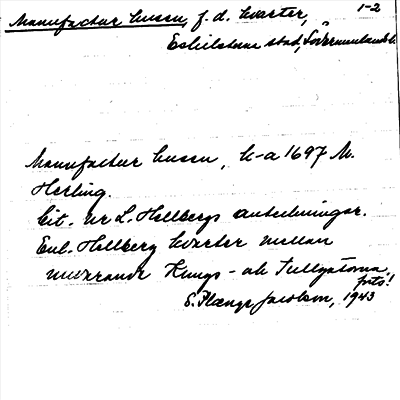 Manufactur husen, f. d. kvarter, 1-2
Eskilstuna stad, Södermanlands l.
Manufactur husen, k-a 1697 M.
Herling.
Cit. ur L. Hellbergs anteckningar.
Enl. Hellberg kvarter mellan
nuvarande Kungs- och Tullgatorna.
forts!
S. Plænge Jacobson, 1943